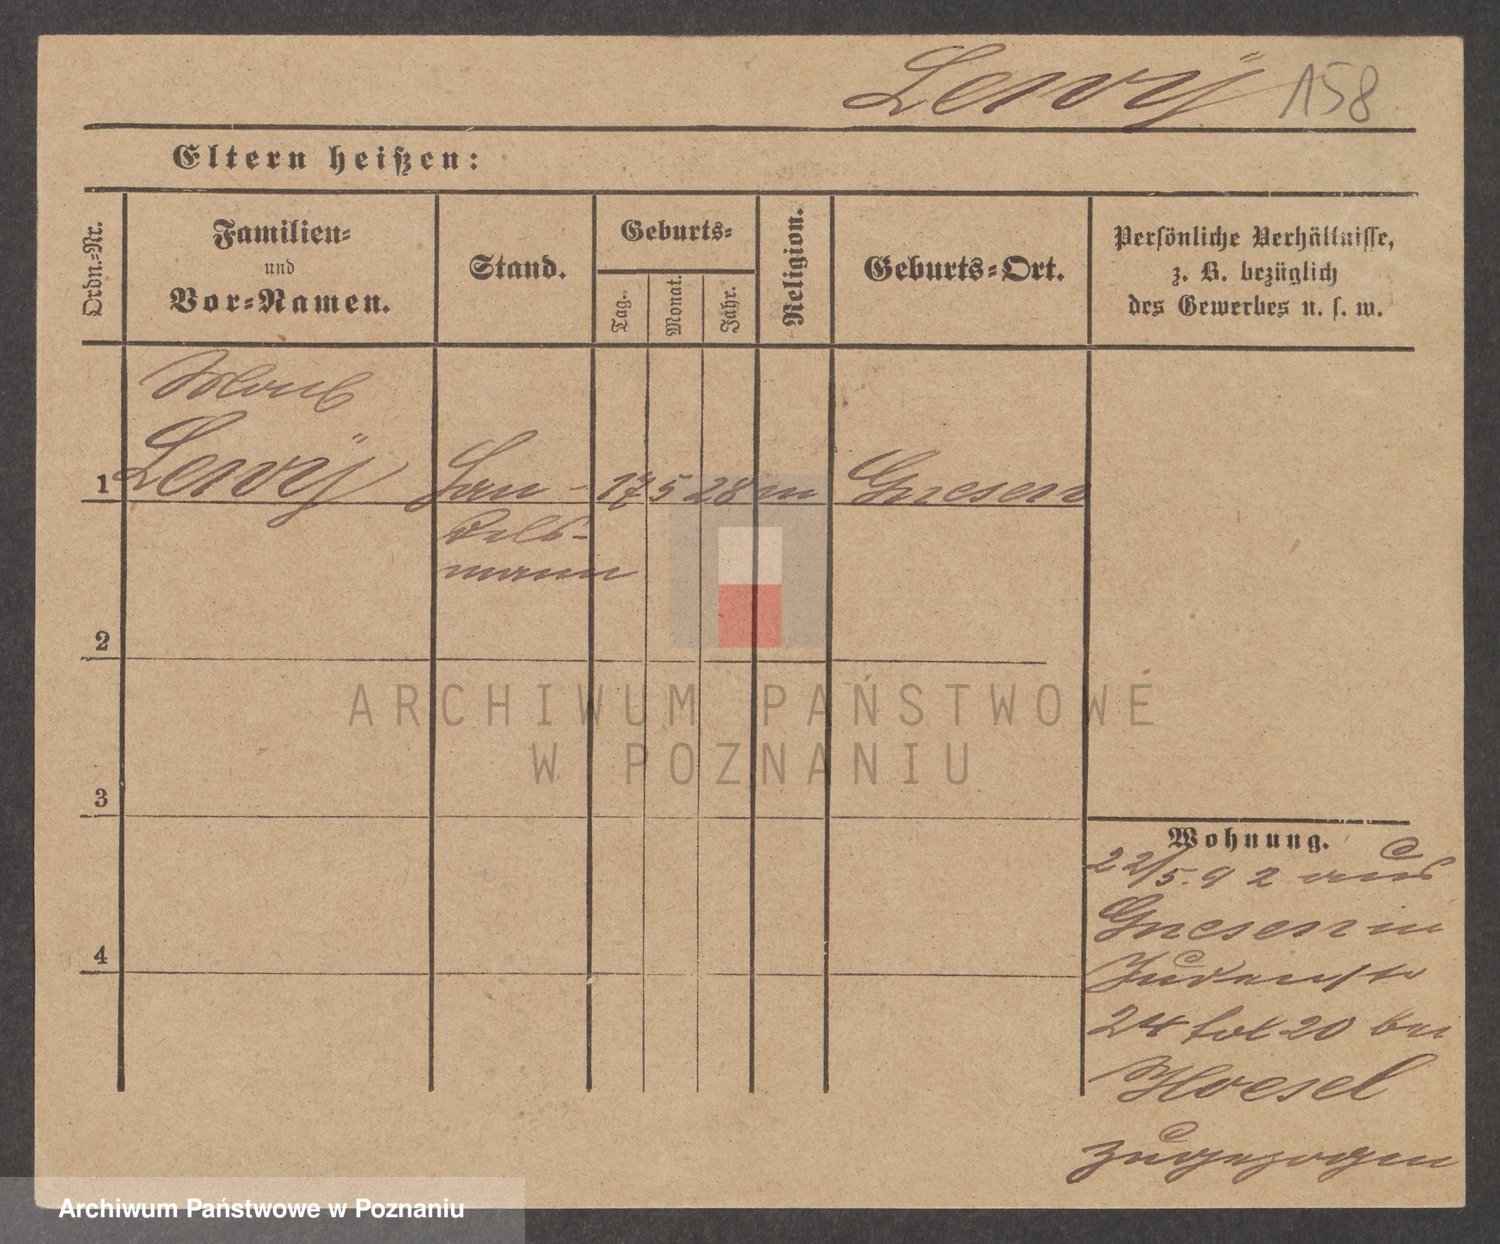 Lewÿ 158
Eltern heißen:
Ordn.-Nr.
Familien-
und
Vor-Namen.
Stand.
Geburts-
Tag.
Monat.
Jahr.
Religion.
Geburts-Ort.
Persönliche Verhältnisse,
z. B. bezüglich
des Gewerbes u. s. w.
1
Lewÿ
Han-
dels-
mann
17 5 28 m Gnesen
2
3
4
ARCHIWUM PAŃSTWOWE
W POZNANIU
Wohnung.
22/5. 92 aus
Gnesen in
Judenstr
24 bei
zugezogen
Archiwum Państwowe w Poznaniu